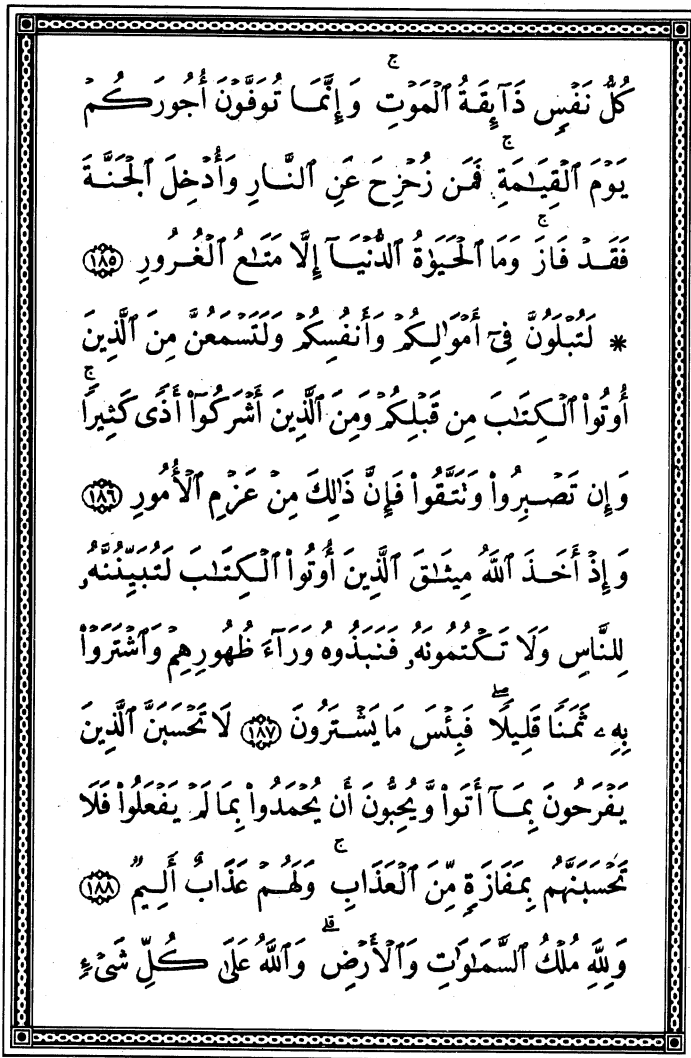 كُلُّ نَفْسٍ ذَآئِقَةُ ٱلْمَوْتِ ۚ وَإِنَّمَا تُوَفَّوْنَ أُجُورَكُمْ
يَوْمَ ٱلْقِيَٰمَةِ ۚ فَمَن زُحْزِحَ عَنِ ٱلنَّارِ وَأُدْخِلَ ٱلْجَنَّةَ
فَقَدْ فَازَ ۚ وَمَا ٱلْحَيَوٰةُ ٱلدُّنْيَآ إِلَّا مَتَٰعُ ٱلْغُرُورِ ١٨٥
* لَتُبْلَوُنَّ فِىٓ أَمْوَٰلِكُمْ وَأَنفُسِكُمْ وَلَتَسْمَعُنَّ مِنَ ٱلَّذِينَ
أُوتُوا۟ ٱلْكِتَٰبَ مِن قَبْلِكُمْ وَمِنَ ٱلَّذِينَ أَشْرَكُوٓا۟ أَذًى كَثِيرًا ۚ
وَإِن تَصْبِرُوا۟ وَتَتَّقُوا۟ فَإِنَّ ذَٰلِكَ مِنْ عَزْمِ ٱلْأُمُورِ ١٨٦
وَإِذْ أَخَذَ ٱللَّهُ مِيثَٰقَ ٱلَّذِينَ أُوتُوا۟ ٱلْكِتَٰبَ لَتُبَيِّنُنَّهُۥ
لِلنَّاسِ وَلَا تَكْتُمُونَهُۥ فَنَبَذُوهُ وَرَآءَ ظُهُورِهِمْ وَٱشْتَرَوْا۟
بِهِۦ ثَمَنًا قَلِيلًا ۖ فَبِئْسَ مَا يَشْتَرُونَ ١٨٧ لَا تَحْسَبَنَّ ٱلَّذِينَ
يَفْرَحُونَ بِمَآ أَتَوا۟ وَّيُحِبُّونَ أَن يُحْمَدُوا۟ بِمَا لَمْ يَفْعَلُوا۟ فَلَا
تَحْسَبَنَّهُم بِمَفَازَةٍ مِّنَ ٱلْعَذَابِ ۚ وَلَهُمْ عَذَابٌ أَلِيمٌ ١٨٨
وَلِلَّهِ مُلْكُ ٱلسَّمَٰوَٰتِ وَٱلْأَرْضِ ۗ وَٱللَّهُ عَلَىٰ كُلِّ شَىْءٍ